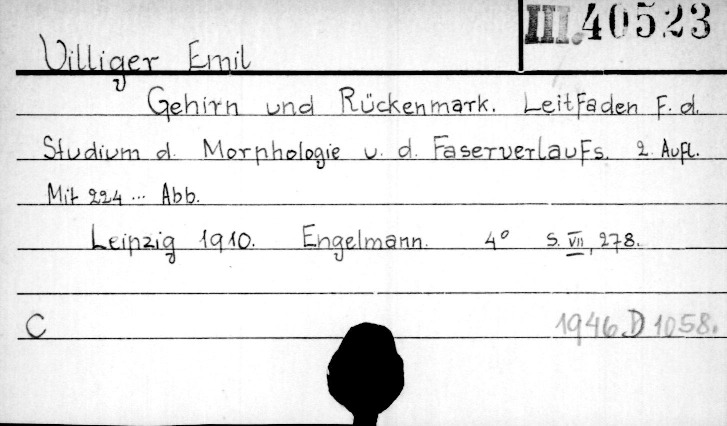 III. 40523
Villiger Emil
Gehirn und Rückenmark. Leitfaden f. d.
Studium d. Morphologie u. d. Faserverlaufs. 2. Aufl.
Mit 224 ... Abb.
Leipzig 1910. Engelmann. 4° S. VII, 278.
C
1946. D 1058.